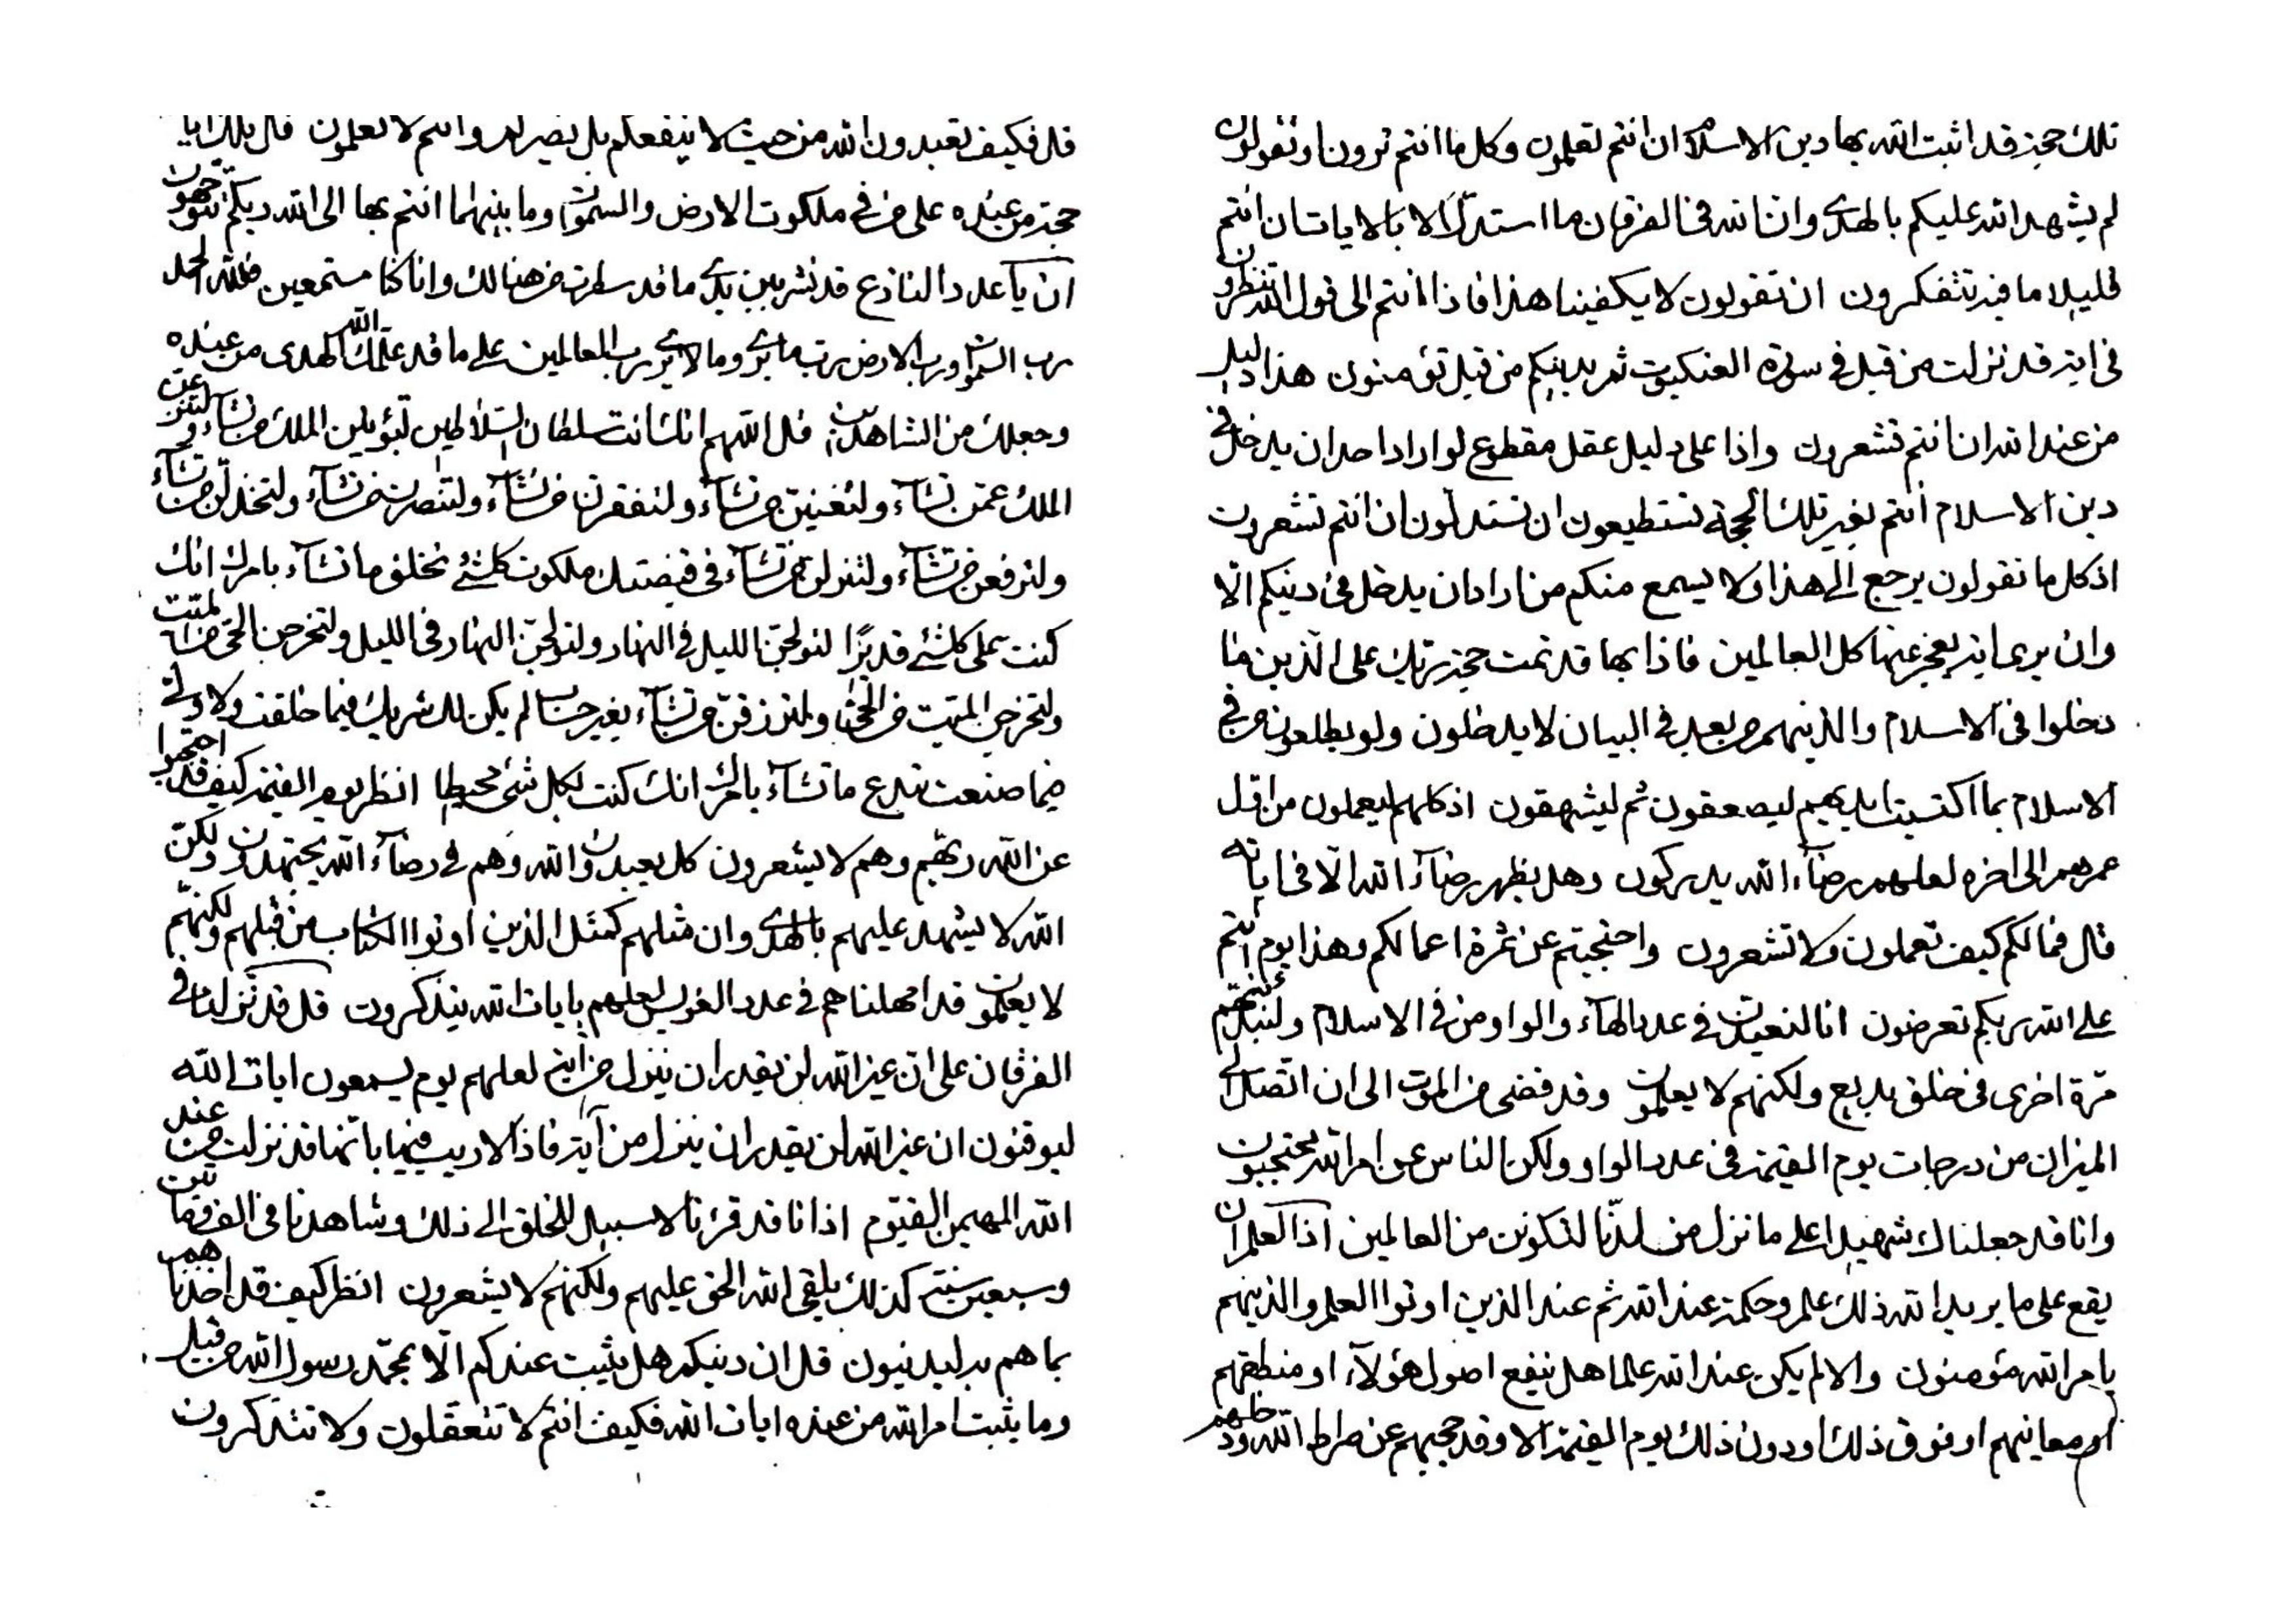 تلك حجة قد اثبت الله بها دين الاسلام ان انتم تعلمون وكل ما انتم ترون او تقولون
لم يشهد الله عليكم بالهدى وان الله في الفرقان ما استدل الا بالايات ان انتم
قليلا ما فيه تتفكرون ان تقولون لا يكفينا هذا فاذا انتم الى قول الله تنظرون
في اية قد نزلت من قبل في سورة العنكبوت ثم بدينكم من قبل تؤمنون هذا دليل
من عند الله ان انتم تشعرون واذا على دليل عقل مقطوع لو اراد احد ان يدخل في
دين الاسلام انتم بغير تلك الحجة تستطيعون ان تستدلون ان انتم تشعرون
اذ كل ما تقولون يرجع الى هذا ولا يسمع منكم من اراد ان يدخل في دينكم الا
وان يرى اية يعجز عنها كل العالمين فاذا بها قد تمت حجة ربك على الذين ما
دخلوا في الاسلام والذينهم من بعد في البيان لا يدخلون ولو يطلعون من في
الاسلام بما اكتسبت ايديهم ليصعقون ثم ليشهقون اذ كلهم ليعملون من اول
عمرهم الى اخره لعلهم رضاء الله يدركون وهل يظهر رضاء الله الا في اياته
قال فما لكم كيف تعملون ولا تشعرون واحتجبتم عن ثمرة اعمالكم وهذا يوم انتم
على الله ربكم تعرضون انا لنعيدن في عدد الهاء والواو من في الاسلام ولنبدلنهم
مرة اخرى في خلق بديع ولكنهم لا يعلمون وقد قضى من الموت الى ان اتصل الى
الميزان من درجات يوم القيمة في عدد الواو ولكن الناس عن امر الله يحتجبون
وانا قد جعلناك شهيدا على ما نزل من لدنا لتكونن من العالمين اذ العلم ان
يقع على ما يريد الله ذلك علم وحكمة عند الله ثم عند الذين اوتوا العلم والذينهم
بامر الله مؤمنون والا لم يكن عند الله علما هل ينفع اصول هؤلاء او منطقهم
او معانيهم او فوق ذلك او دون ذلك يوم القيمة الا وقد حجبهم عن صراط الله ودخلهم
قل فكيف تعبدون الله من حيث لا ينفعكم بل يضركم وانتم لا تعلمون قال تلك ايا
حجة من عنده على من في ملكوت الارض والسموات وما بينهما انتم بها الى الله ربكم تتوجهون
ان يا عدد النازع قد نشر بين يدي ما قد سطرت من هنالك وانا كنا مستمعين فلله الحمد
رب السموات ورب الارض رب ما يرى وما لا يرى رب العالمين على ما قد علمك الله الهدى من عنده
وجعلك من الشاهدين قل اللهم انك انت سلطان السلاطين لتؤتين الملك من تشاء ولتنزعن
الملك عمن تشاء ولتغنين من تشاء ولتفقرن من تشاء ولتنصرن من تشاء ولتخذلن من تشاء
ولترفعن من تشاء ولتنزلن من تشاء في قبضتك ملكوت كلشئ تخلق ما تشاء بامرك انك
كنت على كلشئ قديرا لتولجن الليل في النهار ولتولجن النهار في الليل ولتخرجن الحي من الميت
ولتخرجن الميت من الحي ولترزقن من تشاء بغير حساب لم يكن لك شريك فيما خلقت ولا ولي
فيما صنعت تبدع ما تشاء بامرك انك كنت لكل شئ محيطا انظر يوم القيمة كيف قد احتجبوا
عن الله ربهم وهم لا يشعرون كل يعبدون الله وهم في رضاء الله يجتهدون ولكن
الله لا يشهد عليهم بالهدى وان مثلهم كمثل الذين اوتوا الكتاب من قبلهم ولكنهم
لا يعلمون قد امهلناهم في عدد الغرس لعلهم بايات الله يتذكرون قل قد نزلنا في
الفرقان على ان غير الله لن يقدر ان ينزل من اية لعلهم يوم يسمعون ايات الله
ليوقنون ان غير الله لن يقدر ان ينزل من آية فاذا لا ريب فيها بانها قد نزلت من عند
الله المهيمن القيوم اذ انا قد قرنا لا سبيل للخلق الى ذلك وشاهدنا في الف ومأتين
وسبعين سنة كذلك يلقي الله الحق عليهم ولكنهم لا يشعرون انظر كيف قد اخذناهم
بما هم به ليدينون قل ان دينكم هل يثبت عندكم الا بمحمد رسول الله من قبل
وما يثبت امر الله من عنده ايات الله فكيف انتم لا تتعقلون ولا تتذكرون